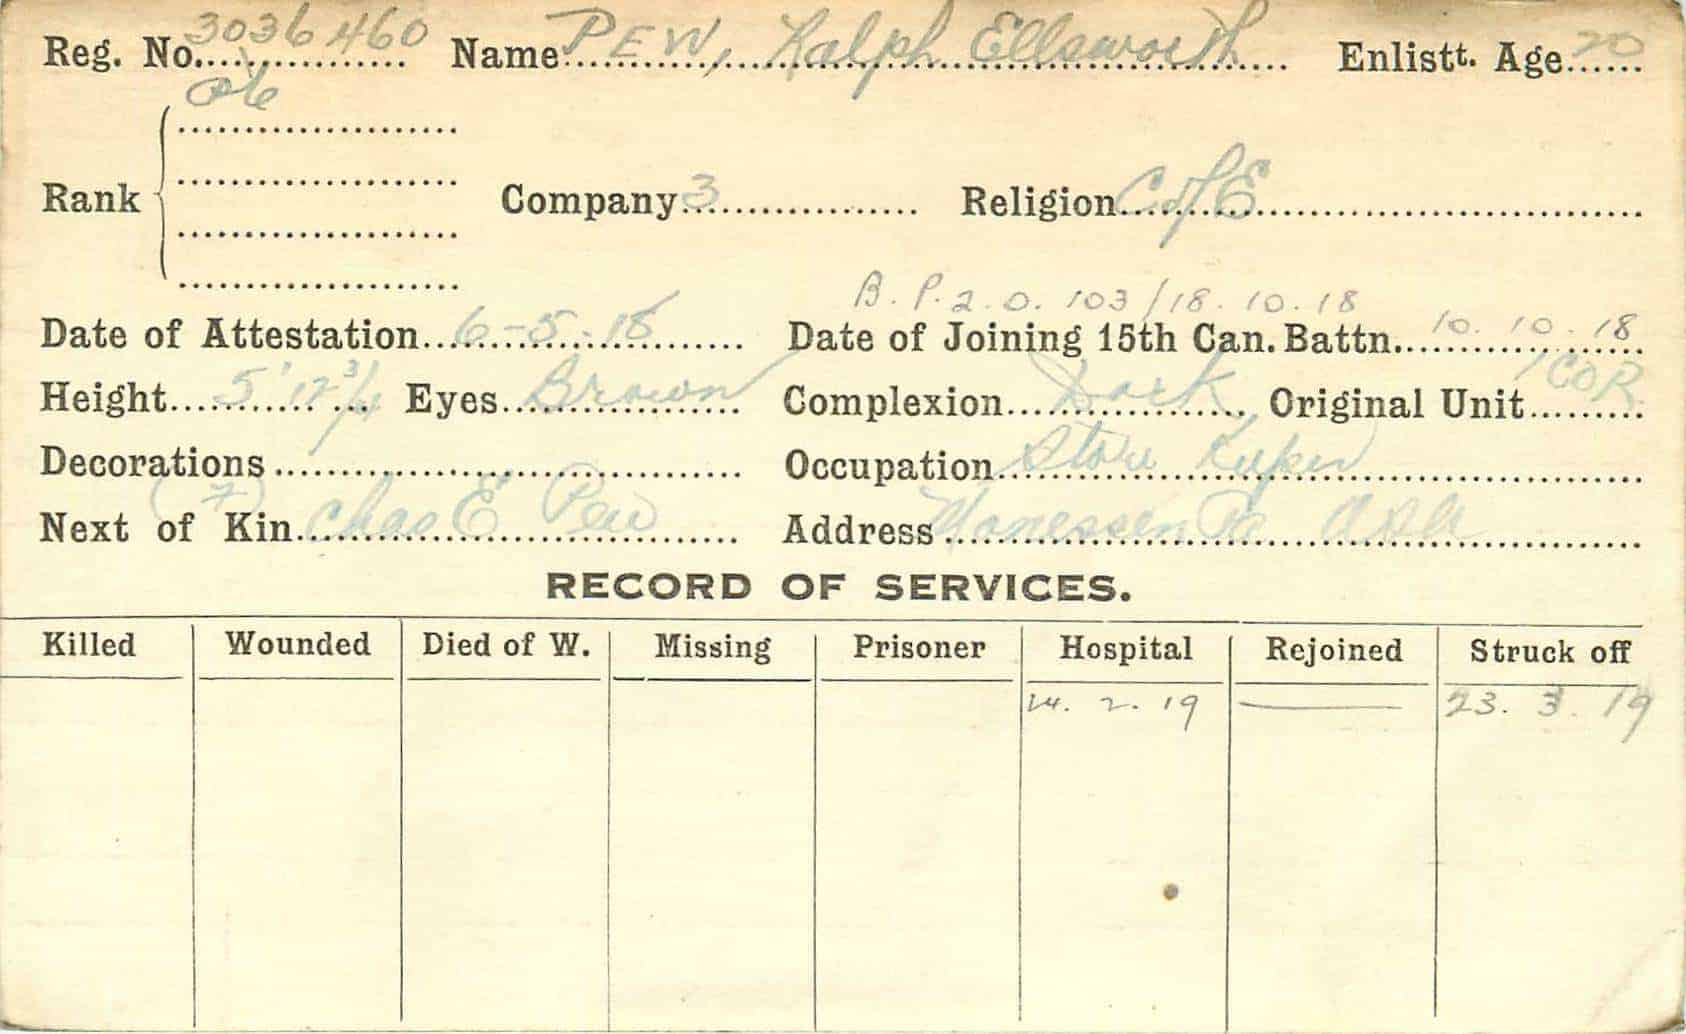 Reg. No. 3036460 Name PEW, Ralph Ellsworth Enlistt. Age 20
Pte
Rank
Company 3 Religion C of E
B. P. 2. O. 103/18.10.18
Date of Attestation 6-5-18 Date of Joining 15th Can. Battn. 10.10.18
Height 5' Eyes Brown Complexion Dark Original Unit 1 COR
Decorations Occupation Store Keeper
Next of Kin (7) Chas E Pew Address Monessen Pa USA
RECORD OF SERVICES.
Killed Wounded Died of W. Missing Prisoner Hospital Rejoined Struck off
14. 2. 19 — 23. 3. 19